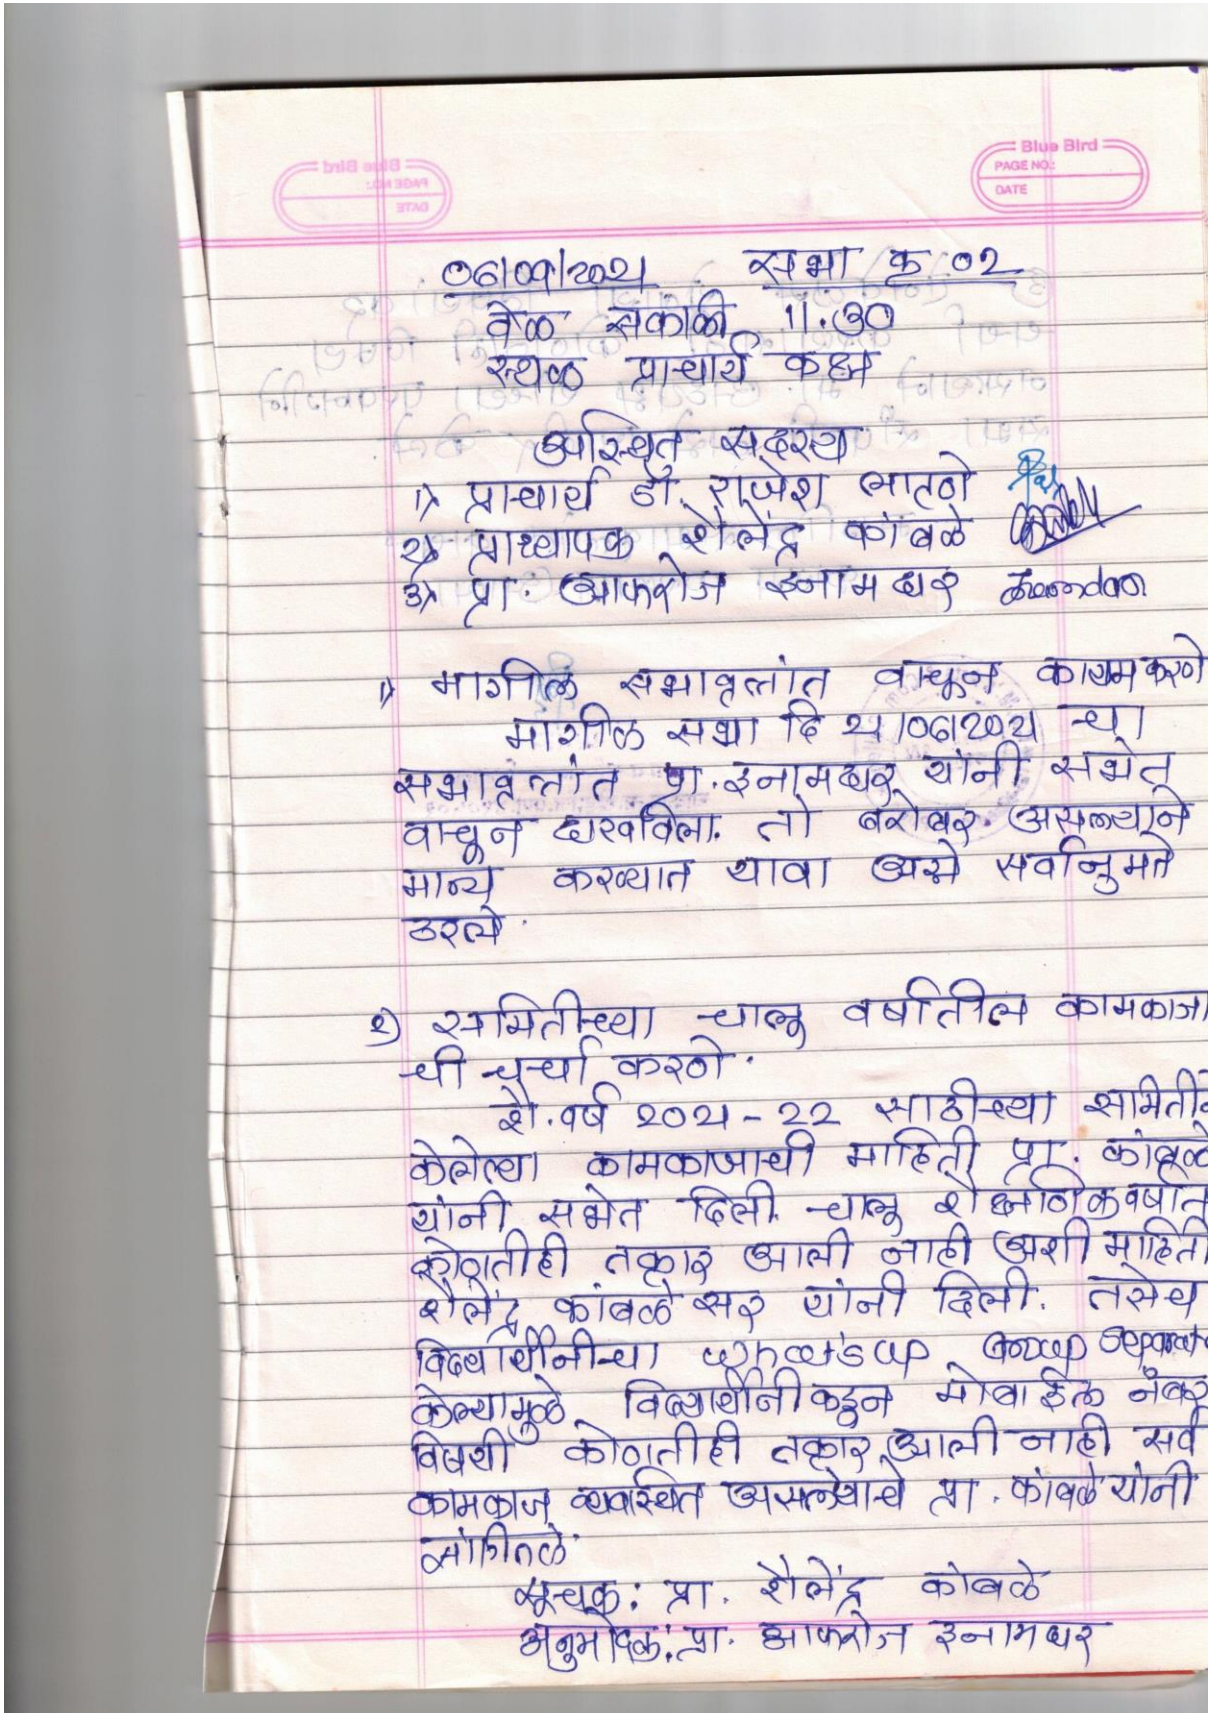 Blue Bird
PAGE NO.:
DATE
०६/०९/२०२१ सभा क्र ०२
वेळ सकाळी ११.३०
स्थळ प्राचार्य कक्ष
उपस्थित सदस्य
१) प्राचार्य डॉ. राजेश
२) प्राध्यापक शैलेंद्र कांबळे
३) प्रा. आफरोज इनामदार
१) मागील सभावृत्तांत वाचून कायम करणे
मागील सभा दि २१/०६/२०२१ चा
सभावृत्तांत प्रा. इनामदार यांनी सभेत
वाचून दाखविला. तो बरोबर असल्याने
मान्य करण्यात यावा असे सर्वानुमते
ठरले.
२) समितीच्या चालू वर्षातील कामकाजा
ची चर्चा करणे.
शै. वर्ष २०२१ - २२ साठीच्या समितीने
केलेल्या कामकाजाची माहिती प्रा. कांबळे
यांनी सभेत दिली. चालू शैक्षणिक वर्षात
कोणतीही तक्रार आली नाही अशी माहिती
शैलेंद्र कांबळे सर यांनी दिली. तसेच
विद्यार्थीनीचा what's up Group separate
केल्यामुळे विद्यार्थीनीकडून मोबाईल नंबर
विषयी कोणतीही तक्रार आली नाही सर्व
कामकाज व्यवस्थित असलेचे प्रा. कांबळे यांनी
सांगितले.
सूचक: प्रा. शैलेंद्र कांबळे
अनुमोदक: प्रा. आफरोज इनामदार